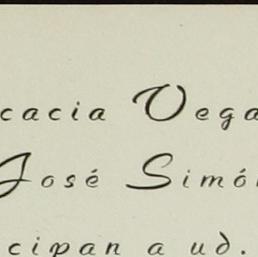 cacia Vega
José Simón
cipan a ud.